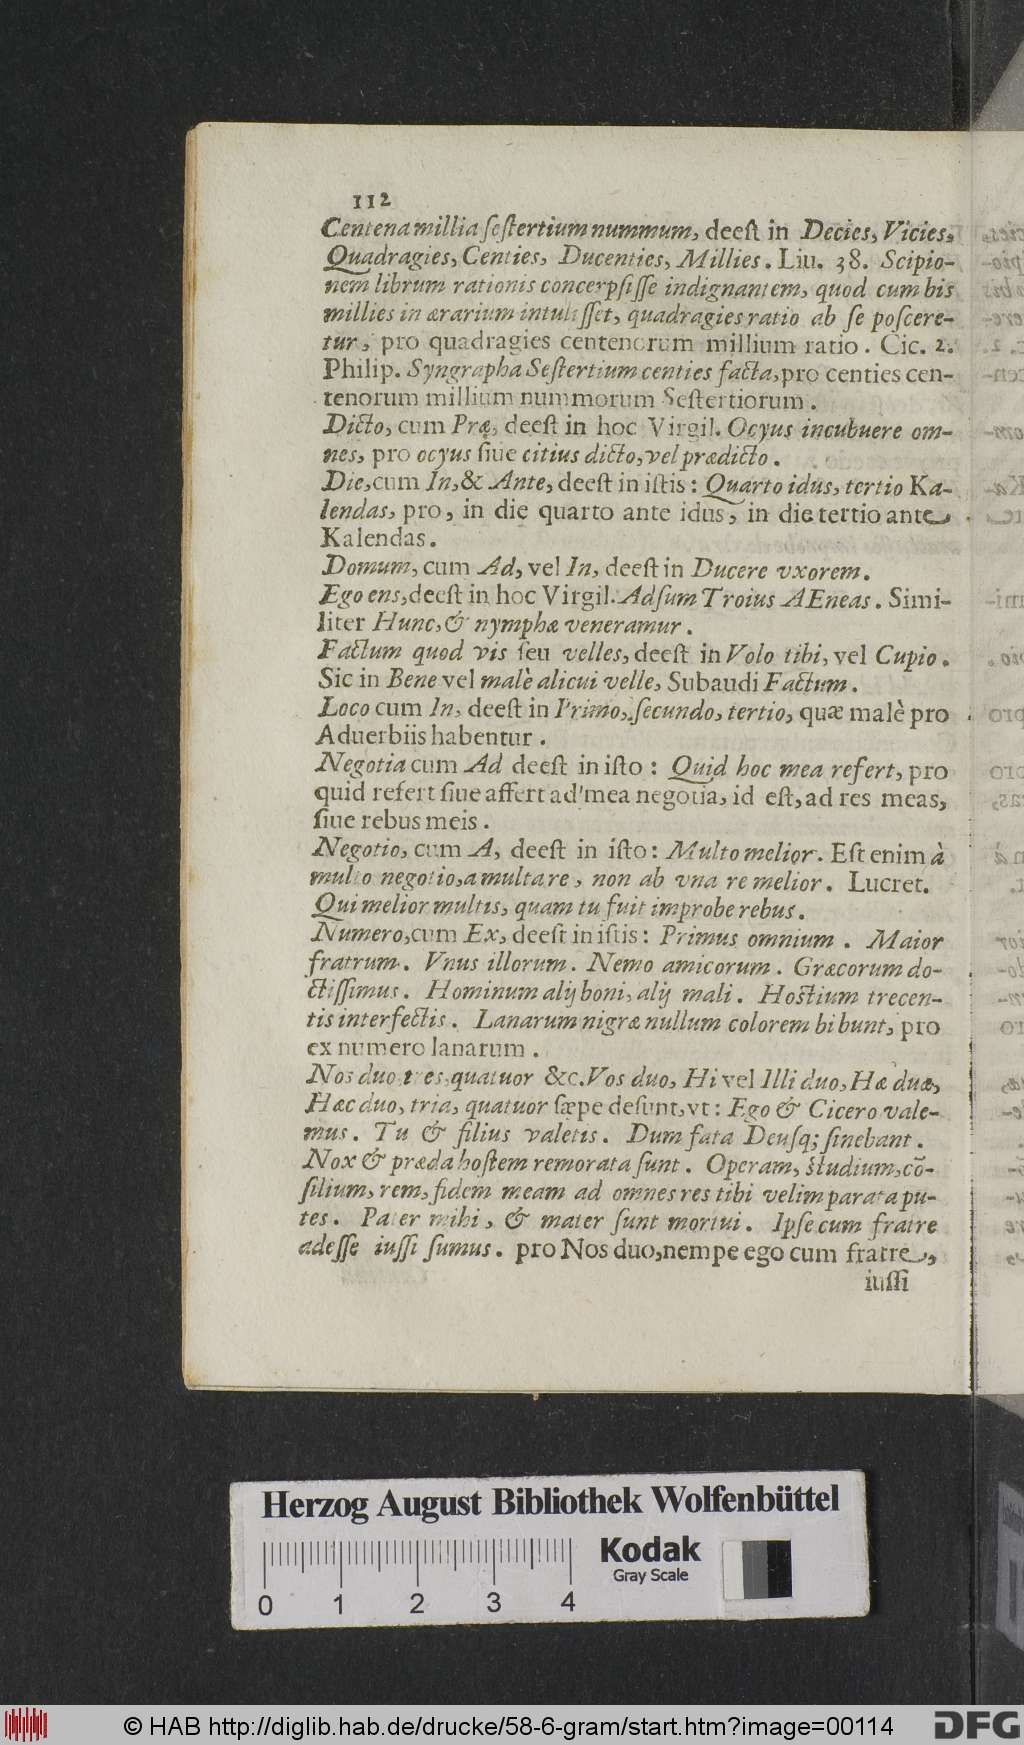 112
Centena millia ſeſtertium nummum, deeſt in Decies, Vicies,
Quadragies, Centies, Ducenties, Millies. Liu. 38. Scipio-
nem librum rationis concerpſiſſe indignantem, quod cum bis
millies in ærarium intuliſſet, quadragies ratio ab ſe poſcere-
tur, pro quadragies centenorum millium ratio. Cic. 2.
Philip. Syngrapha Seſtertium centies facta, pro centies cen-
tenorum millium nummorum Seſtertiorum.
Dicto, cum Præ, deeſt in hoc Virgil. Ocyus incubuere om-
nes, pro ocyus ſiue citius dicto, vel prædicto.
Die, cum In, & Ante, deeſt in iſtis: Quarto idus, tertio Ka-
lendas, pro, in die quarto ante idus, in die tertio ante
Kalendas.
Domum, cum Ad, vel In, deeſt in Ducere vxorem.
Ego ens, deeſt in hoc Virgil. Adſum Troius AEneas. Simi-
liter Hunc, & nymphæ veneramur.
Factum quod vis ſeu velles, deeſt in Volo tibi, vel Cupio.
Sic in Bene vel malè alicui velle, Subaudi Factum.
Loco cum In, deeſt in Primo, ſecundo, tertio, quæ malè pro
Aduerbiis habentur.
Negotia cum Ad deeſt in iſto: Quid hoc mea refert, pro
quid refert ſiue affert ad mea negotia, id eſt, ad res meas,
ſiue rebus meis.
Negotio, cum A, deeſt in iſto: Multo melior. Eſt enim à
multo negotio, a multa re, non ab vna re melior. Lucret.
Qui melior multis, quam tu fuit improbe rebus.
Numero, cum Ex, deeſt in iſtis: Primus omnium. Maior
fratrum. Vnus illorum. Nemo amicorum. Græcorum do-
ctiſſimus. Hominum alij boni, alij mali. Hoſtium trecen-
tis interfectis. Lanarum nigræ nullum colorem bibunt, pro
ex numero lanarum.
Nos duo, tres, quatuor &c. Vos duo, Hi vel Illi duo, Hæ duæ,
Hæc duo, tria, quatuor ſæpe deſunt, vt: Ego & Cicero vale-
mus. Tu & filius valetis. Dum fata Deuſq; ſinebant.
Nox & præda hoſtem remorata ſunt. Operam, ſtudium, cõ-
ſilium, rem, fidem meam ad omnes res tibi velim parata pu-
tes. Pater mihi, & mater ſunt mortui. Ipſe cum fratre
adeſſe iuſſi ſumus. pro Nos duo, nempe ego cum fratre,
iuſſi
Herzog August Bibliothek Wolfenbüttel
Kodak
Gray Scale
0 1 2 3 4
© HAB http://diglib.hab.de/drucke/58-6-gram/start.htm?image=00114
DFG